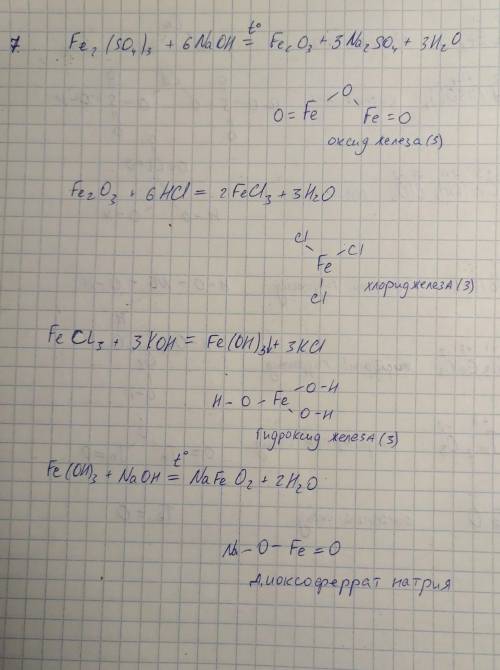 7. Fe₂(SO₄)₃ + 6NaOH =t°= Fe₂O₃ + 3Na₂SO₄ + 3H₂O
O
O = Fe Fe = O
оксид железа (3)
Fe₂O₃ + 6HCl = 2FeCl₃ + 3H₂O
Cl Cl
Fe
Cl
хлорид железа (3)
FeCl₃ + 3KOH = Fe(OH)₃↓ + 3KCl
O-H
H-O-Fe
O-H
Гидроксид железа (3)
Fe(OH)₃ + NaOH =t°= NaFeO₂ + 2H₂O
Na-O-Fe=O
Диоксоферрат натрия